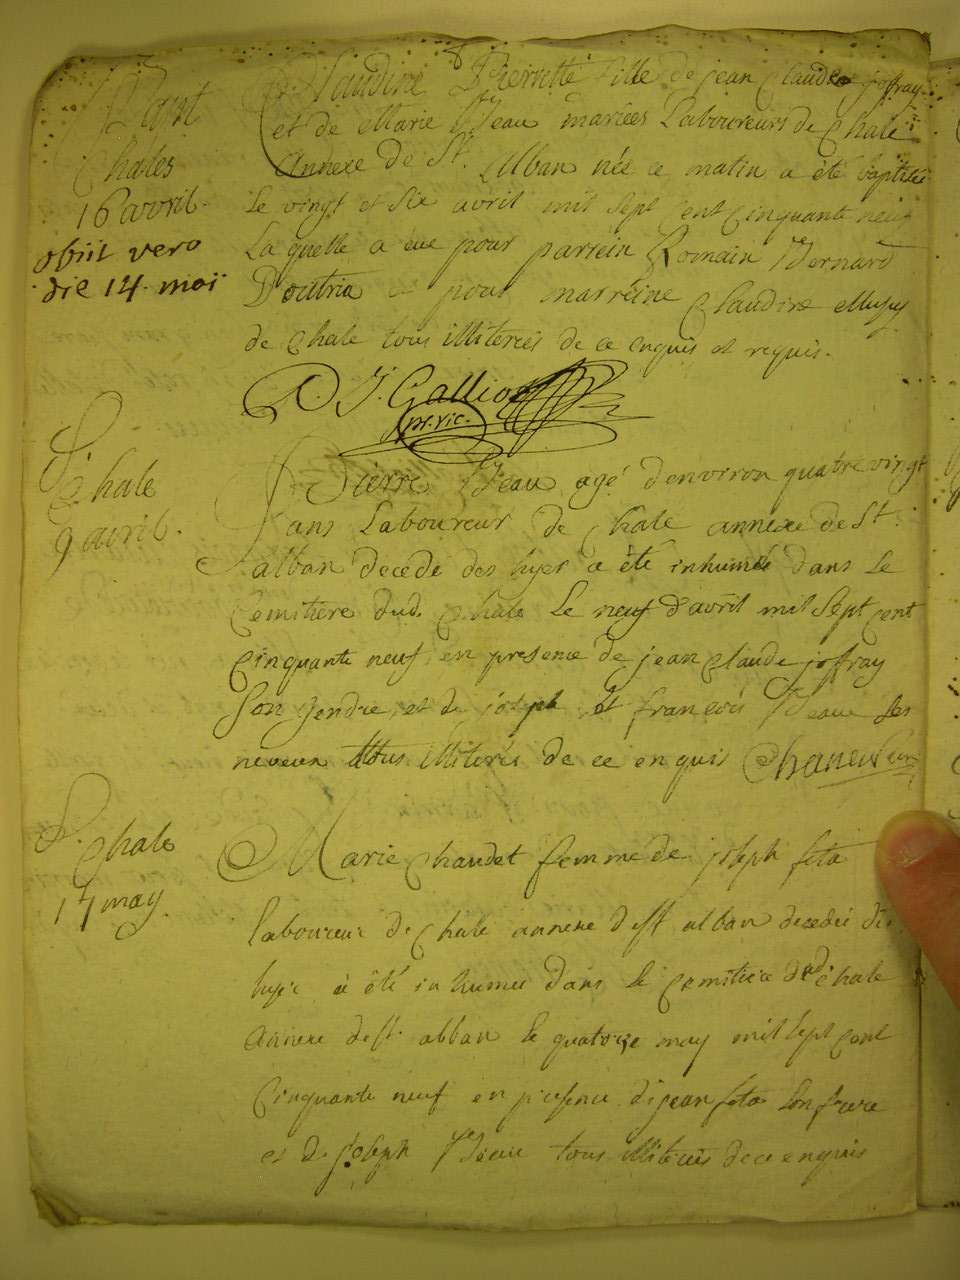 Bapt
Chales
16 avril.
obiit vero
die 14. maï
Claudine Pierrette fille de jean Claude joffray
et de Marie Beau mariées Laboureurs de Chale
Annexe de St. Alban née ce matin a été baptisée
le vingt et six avril mil sept cent cinquante neuf
La quelle a eue pour parrein Romain Bernard
et pour marreine Claudine
de Chale tous illiterés de ce enquis et requis.
J. Galliot
pr. vic.
S. Chale
9 avril.
Pierre Beau agé d'environ quatre vingt
ans Laboureur de Chale annexe de St.
alban decedé des hyer a été inhumé dans le
Cemitiere dud. Chale le neuf d'avril mil sept cent
cinquante neuf, en presence de jean claude joffray
son gendre, et de joseph et francois Beau ses
neveux tous illiterés de ce enquis
S. Chale
14 may
Marie Chaudet femme de joseph feta
laboureur de Chale annexe de st alban decedée
hyer a été inhumée dans le cemitiere dud chale
annexe de st. alban le quatorze may mil sept cent
cinquante neuf en presence de jean feta son frere
et de joseph Beau tous illiterés de ce enquis